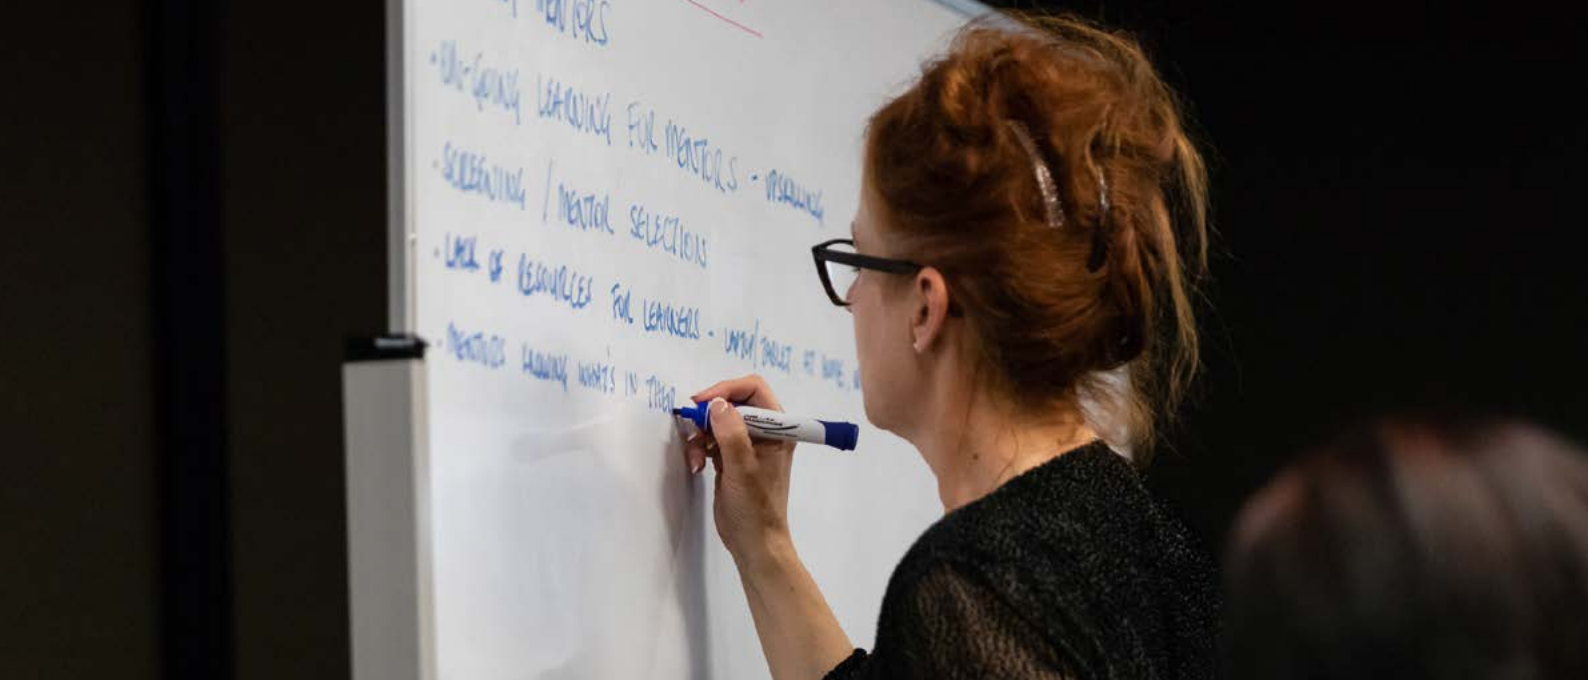 MENTORS
• ON-GOING LEARNING FOR MENTORS - UPSKILLING
• SCREENING / MENTOR SELECTION
• LACK OF RESOURCES FOR LEARNERS - LAPTOP/TABLET AT HOME,
• MENTORS KNOWING WHAT'S IN THEIR